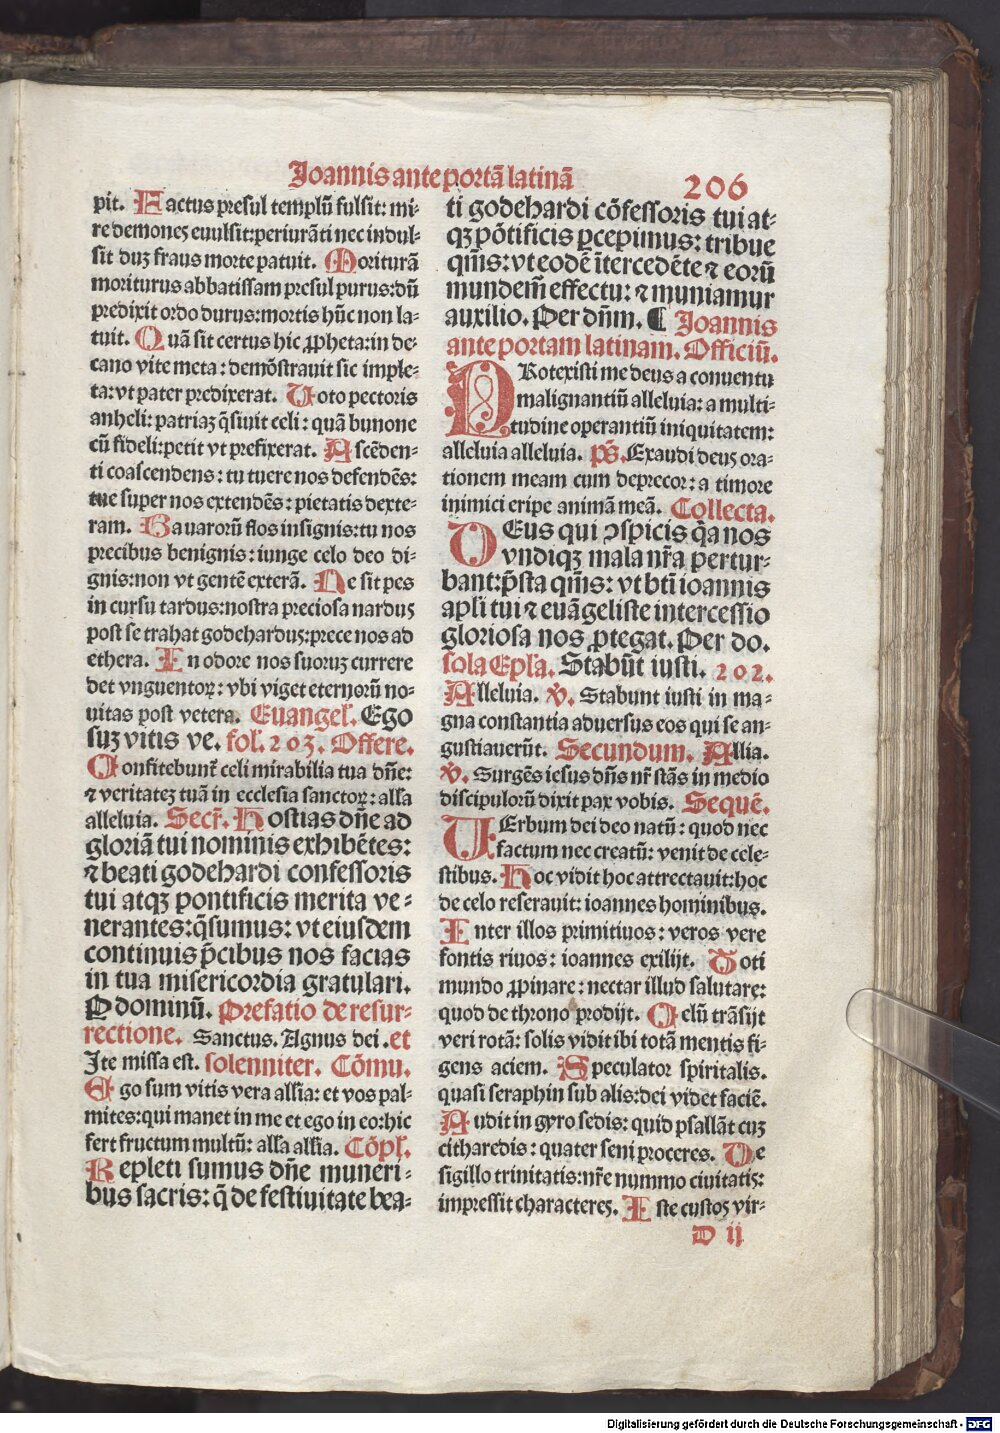 Joannis ante portā latinā
206
pit. Factus presul templū fulsit: mi-
re demones euulsit: periurāti nec indul-
sit duꝫ fraus morte patuit. Moriturā
moriturus abbatissam presul purus: dū
predixit ordo durus: mortis hūc non la-
tuit. Quā sit certus hic ꝓpheta: in de-
cano vite meta: demōstrauit sic imple-
ta: vt pater predixerat. Uoto pectoris
anheli: patriaꝫ q̄siuit celi: quā bunone
cū fideli: petit vt prefixerat. Ascēden-
ti coascendens: tu tuere nos defendēs:
tue super nos extendēs: pietatis dexte-
ram. Bauarorū flos insignis: tu nos
precibus benignis: iunge celo deo di-
gnis: non vt gentē exterā. Ne sit pes
in cursu tardus: nostra preciosa narduꝫ
post se trahat godeharduꝫ: prece nos ad
ethera. In odore nos suoruꝫ currere
det vnguentoꝝ: vbi viget eternorū no-
uitas post vetera. Euangel̓. Ego
suꝫ vitis ve. fol. 203. Offere.
Confitebunt᷑ celi mirabilia tua dn̄e:
⁊ veritateꝫ tuā in ecclesia sanctoꝝ: alla
alleluia. Secr̄. Hostias dn̄e ad
gloriā tui nominis exhibētes:
⁊ beati godehardi confessoris
tui atqꝫ pontificis merita ve-
nerantes: q̄sumus: vt eiusdem
continuis p̄cibus nos facias
in tua misericordia gratulari.
P dominū. Prefatio de resur-
rectione. Sanctus. Agnus dei. et
Ite missa est. solenniter. Cōmu.
Ego sum vitis vera allia: et vos pal-
mites: qui manet in me et ego in eo: hic
fert fructum multū: alla allia. Cōpl̓.
Repleti sumus dn̄e muneri-
bus sacris: q̄ de festiuitate bea-
ti godehardi cōfessoris tui at-
qꝫ pōtificis ꝑcepimus: tribue
qm̄s: vt eodē ītercedēte ⁊ eorū
mundem̄ effectu: ⁊ muniamur
auxilio. Per dn̄m. ¶ Joannis
ante portam latinam. Officiū.
PRotexisti me deus a conuentu
malignantiū alleluia: a multi-
tudine operantiū iniquitatem:
alleluia alleluia. p̄s. Exaudi deuꝫ ora-
tionem meam cum deprecor: a timore
inimici eripe animā meā. Collecta.
DEus qui ꝯspicis q̄a nos
vndiqꝫ mala nr̄a pertur-
bant: p̄sta qm̄s: vt bt̄i ioannis
apl̓i tui ⁊ euāgeliste intercessio
gloriosa nos ꝓtegat. Per do.
sola Epl̓a. Stabūt iusti. 202.
Alleluia. ℣. Stabunt iusti in ma-
gna constantia aduersus eos qui se an-
gustiauerūt. Secundum. Allia.
℣. Surgēs iesus dn̄s nr̄ stās in medio
discipulorū dixit pax vobis. Sequē.
UErbum dei deo natū: quod nec
factum nec creatū: venit de cele-
stibus. Hoc vidit hoc attrectauit: hoc
de celo reserauit: ioannes hominibus.
Inter illos primitiuos: veros vere
fontis riuos: ioannes exilijt. Toti
mundo ꝓpinare: nectar illud salutare:
quod de throno prodijt. Celū trāsijt
veri rotā: solis vidit ibi totā mentis fi-
gens aciem. Speculator spiritalis.
quasi seraphin sub alis: dei videt faciē.
Audit in gyro sedis: quid psallāt cuꝫ
citharedis: quater seni proceres. De
sigillo trinitatis: nr̄e nummo ciuitatis:
impressit characteres. Iste custos vir-
D ij
Digitalisierung gefördert durch die Deutsche Forschungsgemeinschaft - DFG